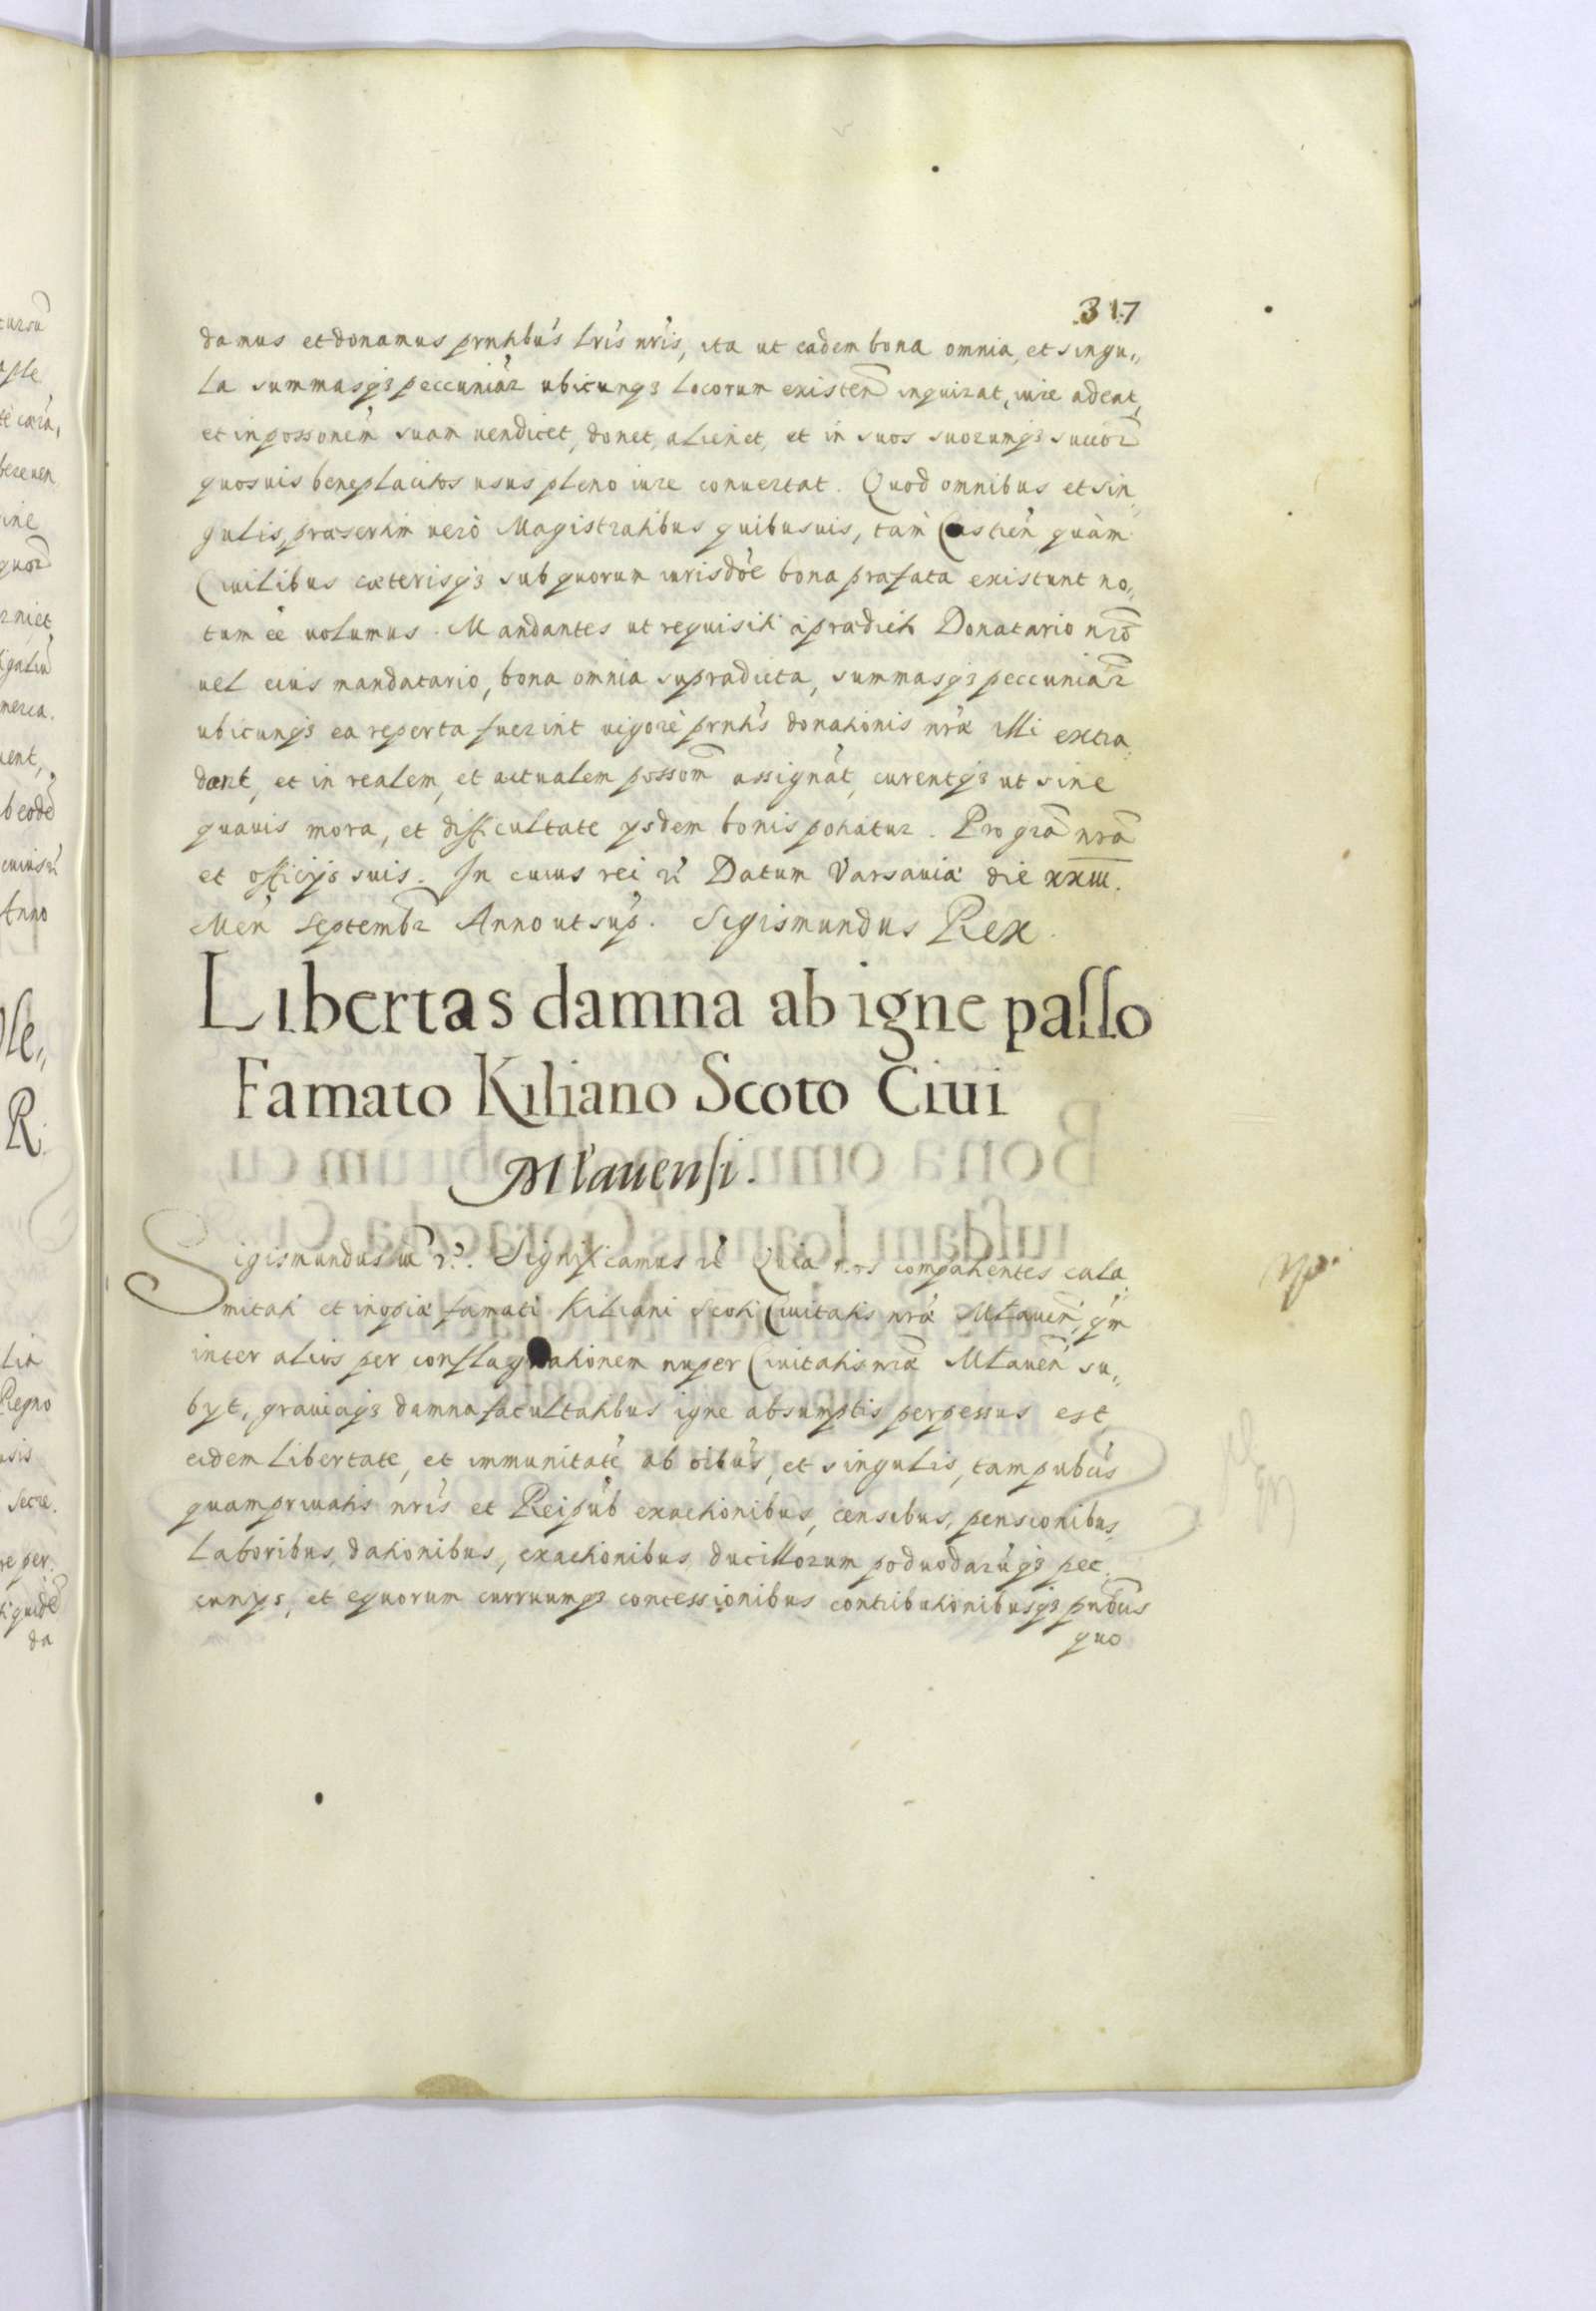 317
damus et donamus prntibus lris nris, ita ut eadem bona omnia, et singu„
la summasq3 peccuniar ubicunq3 locorum existen inquirat, iure adeat,
et in possonem suam uendicet, donet, alienet, et in suos suorumq3 succor
quosuis beneplacitos usus pleno iure conuertat. Quod omnibus et sin„
gulis, præsertim uerò Magistratibus quibusuis, tàm Castren quàm
Ciuilibus cæterisq3 sub quorum iurisdoe bona præfata existunt no„
tum ee uolumus. Mandantes ut requisiti à prædicto Donatario nro
uel eius mandatario, bona omnia supradicta, summasq3 peccuniar
ubicunq3 ea reperta fuerint uigore prntis donationis nræ illi extra„
dant, et in realem, et actualem possom assignat, curentq3 ut sine
quauis mora, et difficultate ysdem bonis potiatur. Pro gra nra
et officijs suis. In cuius rei &c Datum Varsauiæ die xxiii.
Men Septembr Anno ut sup. Sigismundus Rex.
Libertas damna ab igne passo
Famato Kiliano Scoto Ciui
Mlauensi.
Sigismundus iii &c. Significamus &c Quia nos compatientes cala„
mitati et inopiæ famati Kiliani Scoti Ciuitatis nræ Mlauen, qm
inter alios per conflagrationem nuper Ciuitatis nræ Mlauen su„
byt, grauiaq3 damna facultatibus igne absumptis perpessus est,
eidem libertate, et immunitate ab oibus, et singulis, tam pubcis
quam priuatis nris et Reipub exactionibus, censibus, pensionibus,
laboribus, dationibus, exactionibus ducillorum poduodarumq3 pec„
cunys, et equorum curruumq3 concessionibus contributionibusq3 pubcis
quo